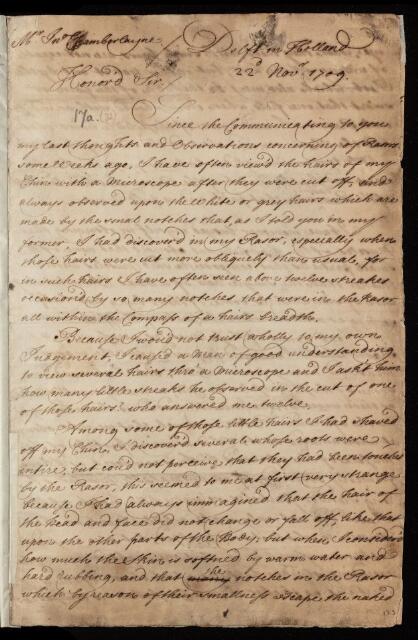 Mr Jno. Chamberlayne
Delft in Holland
22d Novr. 1709.
Honord Sir,
17a.
Since the Communicating to you
my last thoughts and Observations concerning of Rasors
some Weeks ago, I have often view'd the hairs of my
Chin with a Microscope after they were cut off, and
always observed upon the White or grey hairs which are
made by the small notches that, as I told you in my
former, I had discover'd in my Rasor, especially when
those hairs were cut more obliquely than usual, for
in such hairs I have often seen above twelve streakes
occasion'd by so many notches that were in the Rasor
all within the Compass of a hairs breadth.
Because I would not trust wholly to my own
Judgement, I caused a Man of good understanding
to view several hairs thro a Microscope and I askt him
how many little streaks he observed in the cut of one
of those hairs? who answered me twelve.
Among some of those little hairs I had shaved
off my Chin, I discover'd severals whose roots were
entire, but could not perceive that they had been touched
by the Rasor, this seemed to me at first very strange
because I had always immagined that the hair of
the head and face did not change or fall off, like that
upon the other parts of the Body, but when I consider'd
how much the Skin is softned by warm water and
hard rubbing, and that the many notches in the Rasor
which by reason of their smallness escape the naked